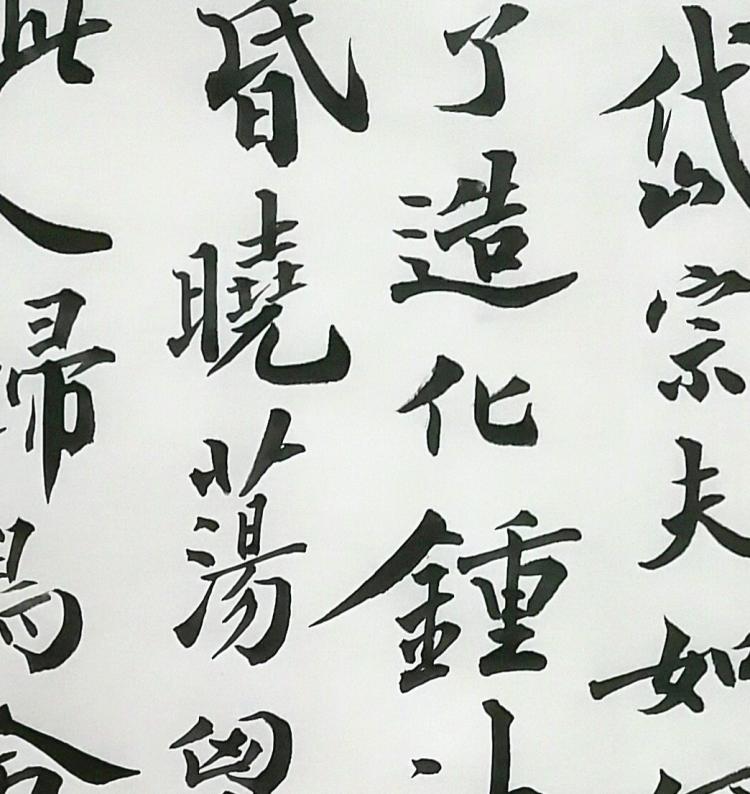 岱宗夫如
了造化鍾
昏曉蕩
入歸鳥